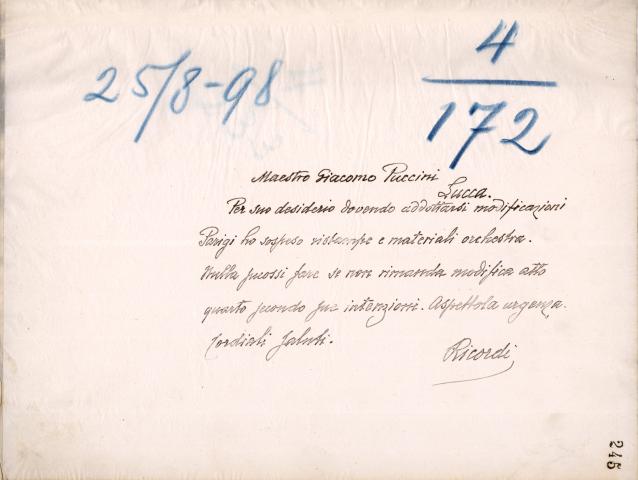 25/8-98
4
172
Maestro Giacomo Puccini
Lucca.
Per suo desiderio dovendo addottarsi modificazioni
Parigi ho sospeso ristampe e materiali orchestra.
Nulla puossi fare se non rimanda modifica atto
quarto secondo sue intenzioni. Aspettola urgenza.
Cordiali saluti.
Ricordi
245